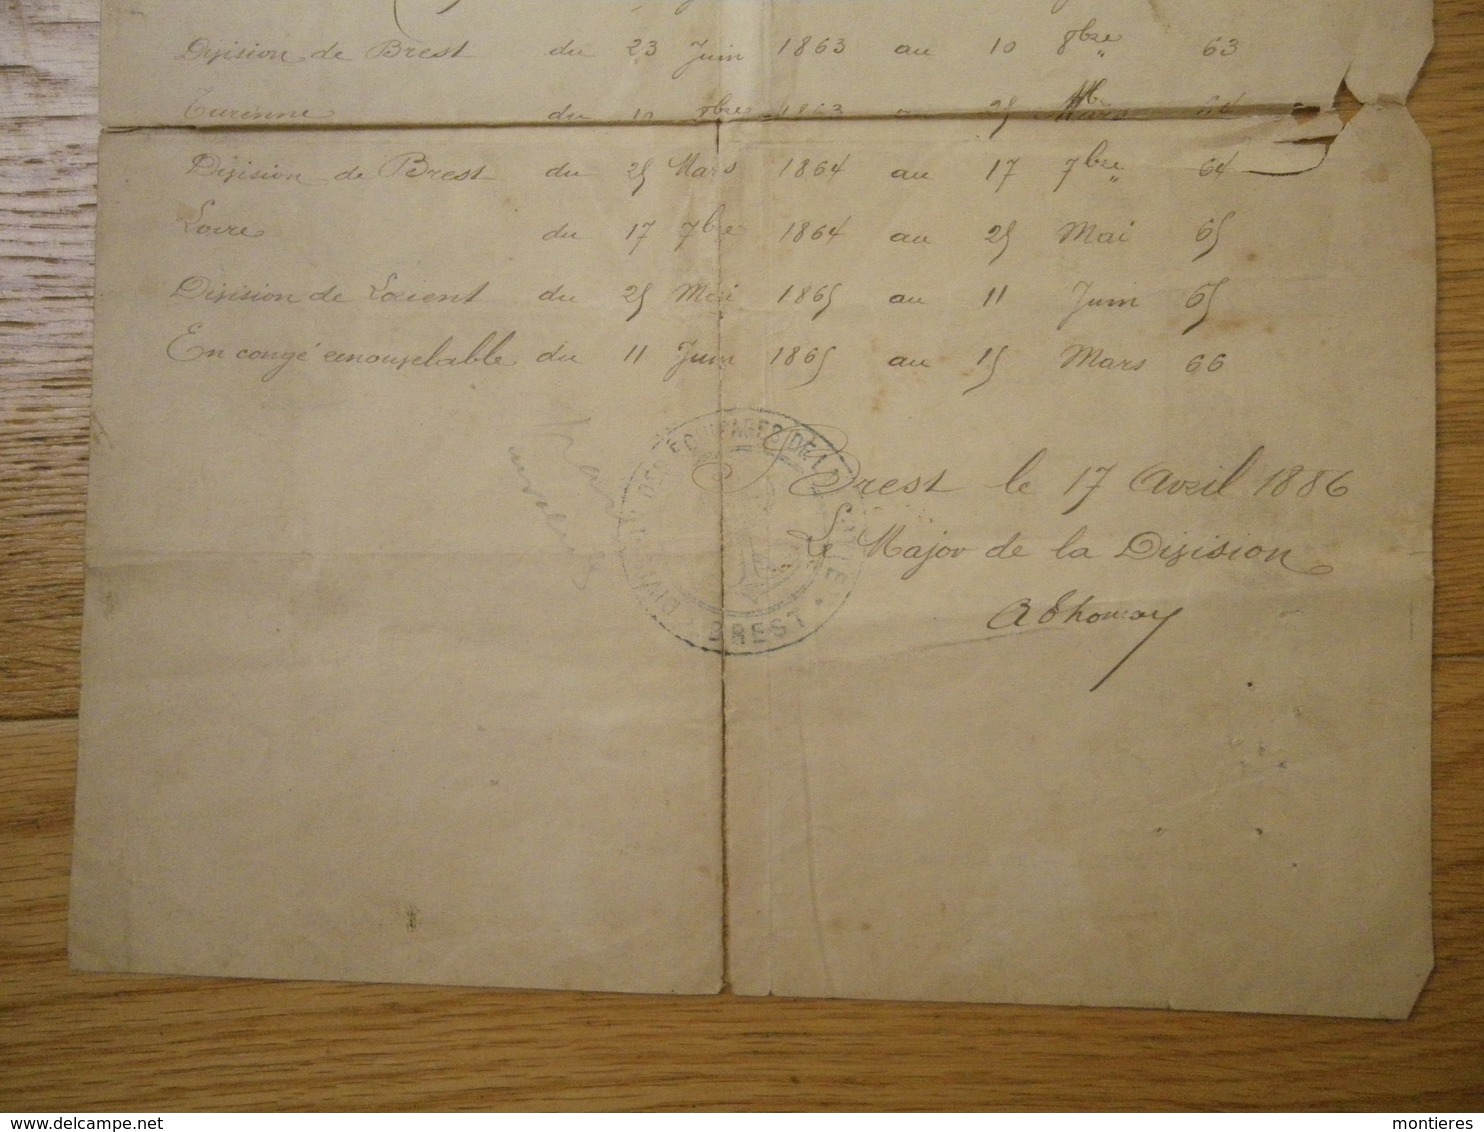 Division de Brest du 23 Juin 1863 au 10 8bre " 63
Turenne du 10 8bre 1863 au 25 Mars 64
Division de Brest du 25 Mars 1864 au 17 7bre " 64
Loire du 17 7bre 1864 au 25 Mai 65
Division de Lorient du 25 Mai 1865 au 11 Juin 65
En congé renouvelable du 11 Juin 1865 au 15 Mars 66
Brest le 17 Avril 1886
Le Major de la Division
AThomas
DES EQUIPAGES DE LA
BREST
montieres - www.delcampe.net